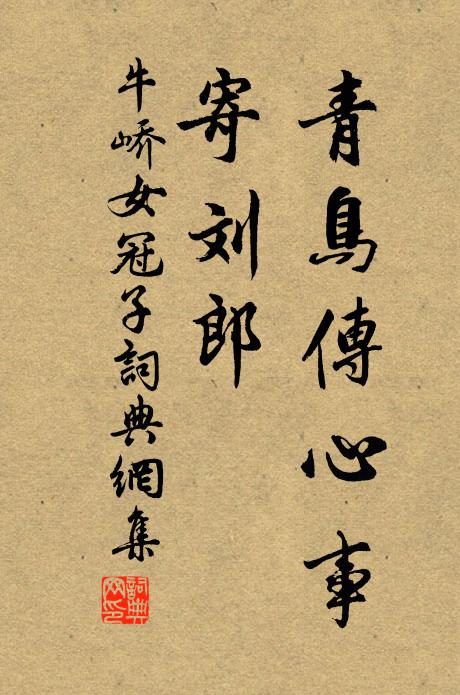 青鳥傳心事
寄刘郎
牛峤女冠子詞典網集
詞典网印